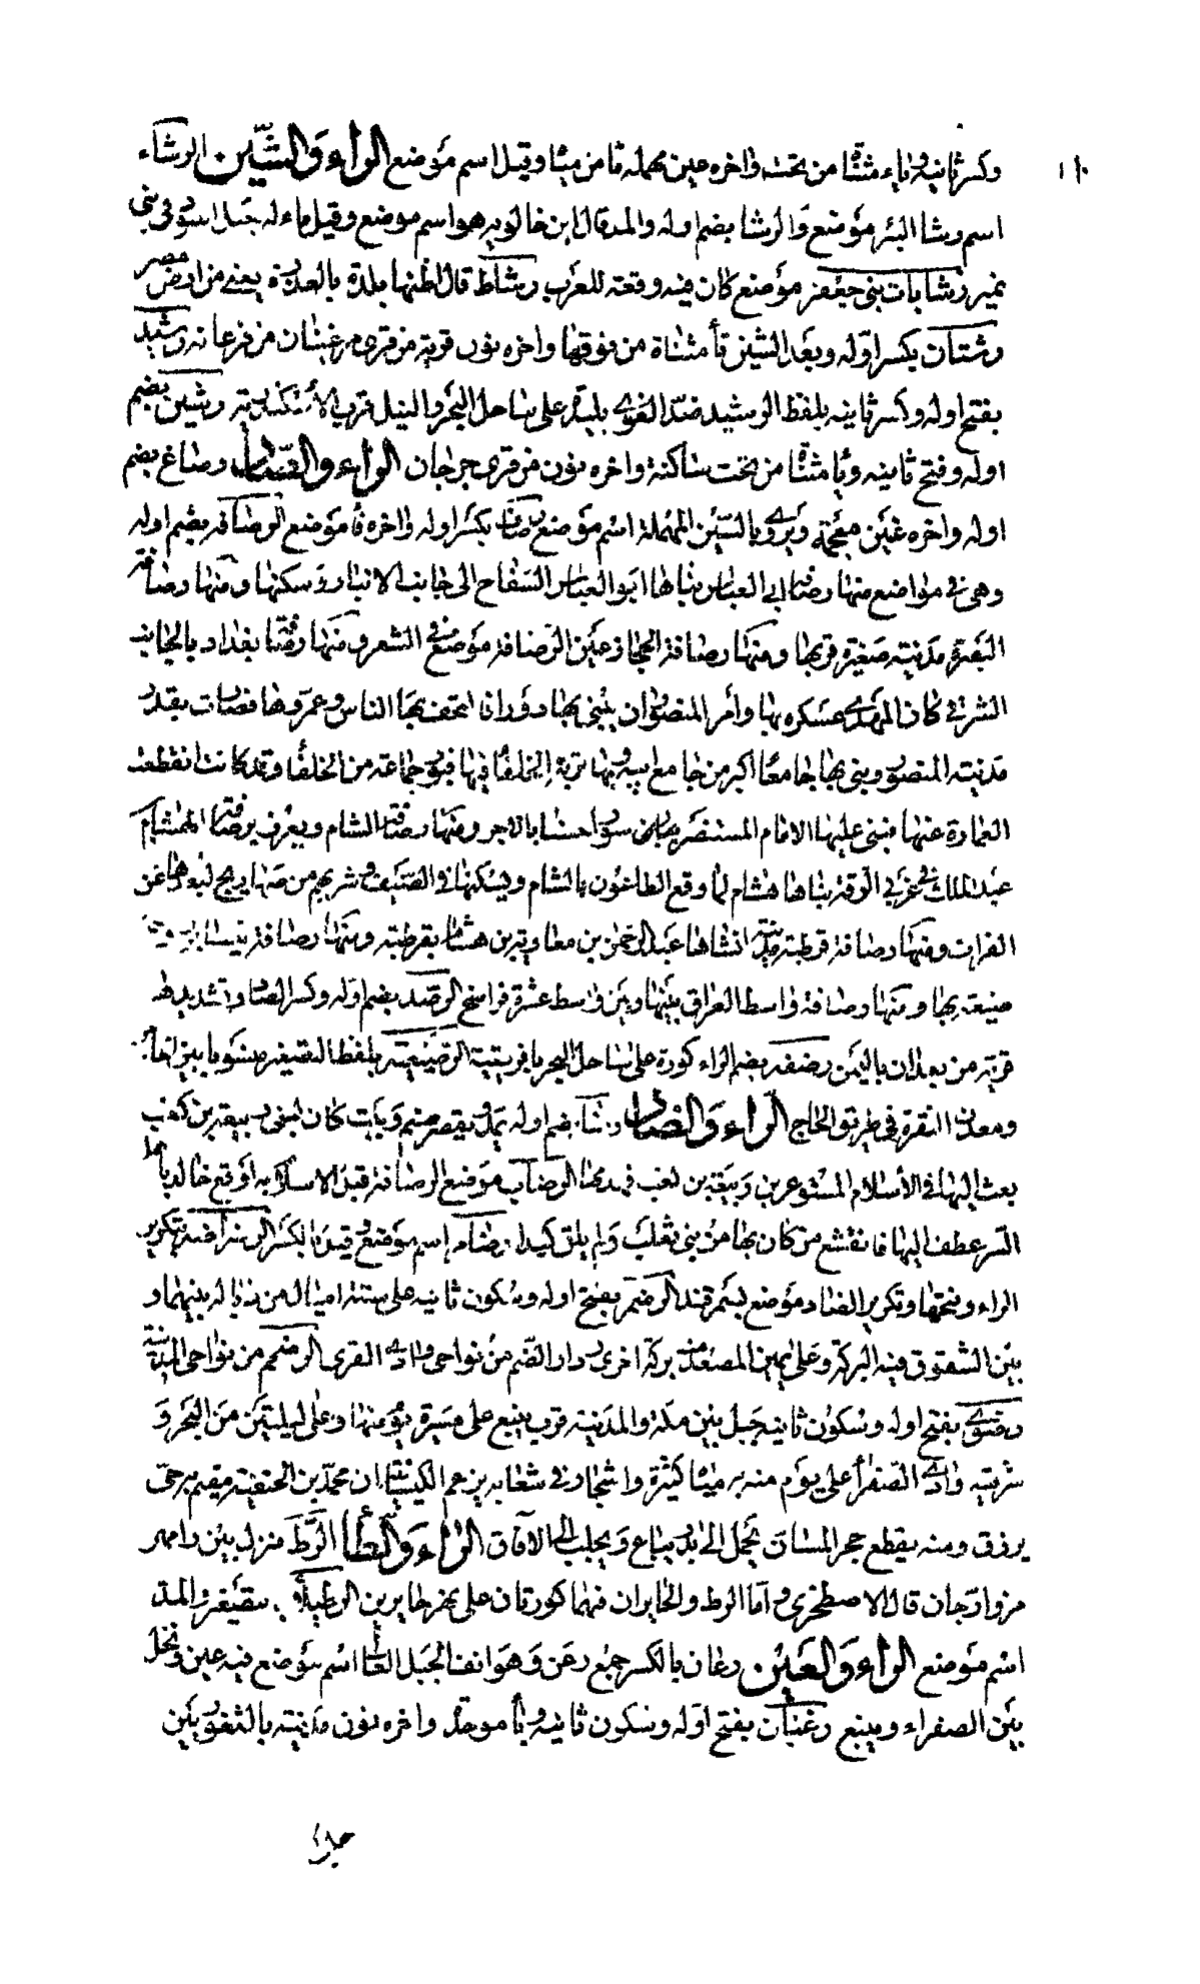 ١١٠
وكسر ثانيه وياء مثناة من تحت واخره عين مهملة قا من مينا وقيل اسم موضع الراء والشين الرشاء
اسم رشا البئر موضع والرشا بضم اوله والمد قال ابن خالويه هو اسم موضع وقيل ماء له جبل اسود في بني
نمير رشايات بني جعفر موضع كان فيه وقعة للعرب رشاط قال اظنها بلدة بالعدوة يعني من ارض مصر
رشتان بكسر اوله وبعد الشين تأ مثناة من فوقها واخره نون قرية من قرى مرغينان من فرغانه رشيد
بفتح اوله وكسر ثانيه بلفظ الرشيد ضد الغوى بليدة على ساحل البحر والنيل قرب الأسكندرية رشين بضم
اوله وفتح ثانيه ويا مثناة من تحت ساكنة واخره نون من قرى جرجان الراء والصاد رصاغ بضم
اوله واخره غين معجمة ويروى بالسين المهملة اسم موضع رصاف بكسر اوله واخره فا موضع الرصافه بضم اوله
وهى فى مواضع منها رصافة ابى العباس بناها ابو العباس السفاح الى جانب الانبار وسكنها ومنها رصافة
البصرة مدينة صغيرة قربها ومنها رصافة الحجاز عين الرصافه موضع فى الشعر ومنها رصافة بغداد بالجانب
الشرقى كان المهدى عسكره بها وأمر المنصور ان يبنى بها دورا فالتحف بها الناس وعمروها فصارت بقدر
مدينة المنصور وبنى بها جامعا اكبر من جامع ابيه وبها تربة الخلفا فيها قبور جماعة من الخلفا وقد كانت انقطعت
العمارة عنها فبنى عليها الامام المستنصر سورا حسنا بالاجر ومنها رصافة الشام ويعرف برصافة هشام
عبد الملك فى غربى الرقة بناها هشام لما وقع الطاعون بالشام ويسكنها فى الصيف وشربهم من صهاريج لبعدها عن
الفرات ومنها رصافة قرطبة مدينة انشاها عبد الرحمن بن معاوية بن هشام بقرطبة ومنها رصافة نيسابور
ضيعة بها ومنها رصافة واسط العراق بينها وبين واسط عشرة فراسخ الرصد بضم اوله وكسر الصاد وتشديدها
قرية من بعدان باليمن رصفه بضم الراء كورة على ساحل البحر بافريقية الرصيعية بلفظ التصغير منسوبا بين
ومعدن النقرة فى طريق الحاج الراء والضاد رضا بضم اوله يمد ويقصر صنم وبيت كان لبنى ربيعة بن كعب
بعث اليها فى الأسلام المستوعر بن ربيعة بن كعب فهدمها الرضاب موضع الرصافة قبل الاسلام به أوقع خالد
الس عطف اليها فانقشع من كان بها من بنى تغلب ولم يلق كيدا رضام اسم موضع وقيل بالكسر الرضراضه بتكرير
الراء وفتحها وتكرير الضاد موضع بسمرقند الرضم بفتح اوله وسكون ثانيه على ستة اميال من زبالة بينهما و
بين الشقوق فيه البركة وعلى يمين المصعد منه بركة اخرى دار الضم من نواحى وادى القرى الرضم من نواحى المدينة
رضوى بفتح اوله وسكون ثانيه جبل بين مكة والمدينة قرب ينبع على مسيرة يوم منها وعلى ليلتين من البحر و
شرقيه وادى الصفرأ على يوم منه به مياه كثيرة واشجار وفى شعابه يزعم الكيسانية ان محمد بن الحنفية مقيم به حى
يرزق ومنه يقطع حجر المسان يحمل الى البلاد يباع ويجلب الى الآفاق الراء والطا الرط منزل بين رامهر
مز وارجان قال الاصطخرى واما الرط والخابران فهما كورتان على نهر طاب رين الرطيلاء بتصغير والمد
اسم موضع الراء والعين رعان بالكسر جمع رعن وهو انف الجبل العالى اسم موضع فيه عين ونخل
بين الصفراء وينبع رغبان بفتح اوله وسكون ثانيه وبا موحدة واخره نون مدينة بالثغور بين
حلب